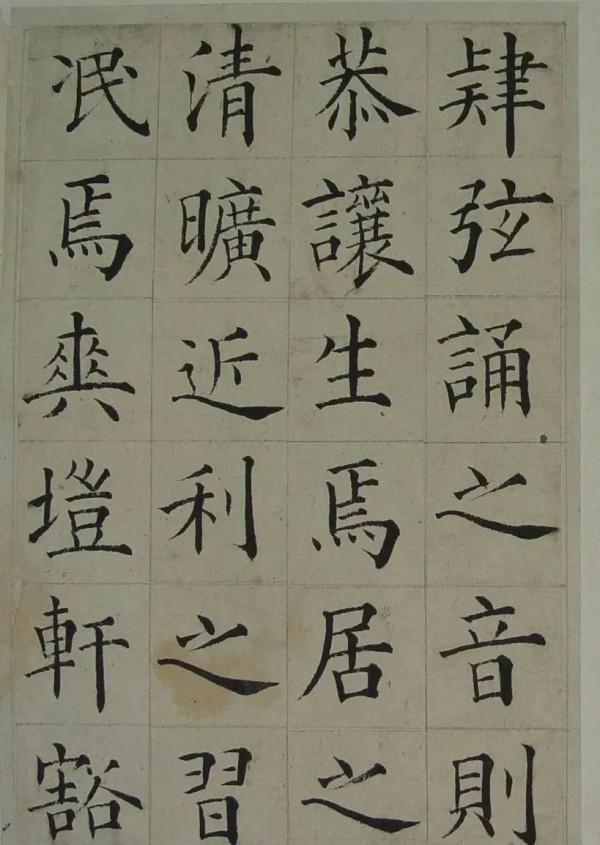 肄弦誦之音則
恭讓生焉居之
清曠近利之習
冺焉爽塏軒豁